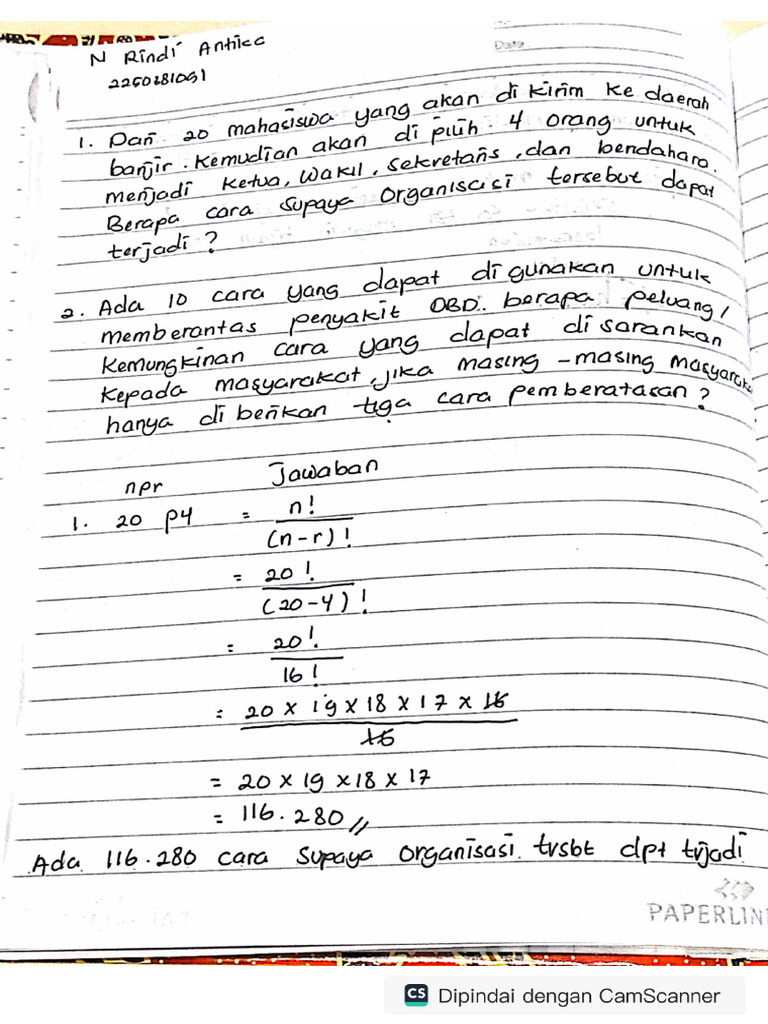 Date
N Rindi Antika
1. Dari 20 mahasiswa yang akan di kirim ke daerah
banjir. Kemudian akan di pilih 4 orang untuk
menjadi Ketua, Wakil, Sekretaris, dan bendahara.
Berapa cara supaya Organisasi tersebut dapat
terjadi?
2. Ada 10 cara yang dapat di gunakan untuk
memberantas penyakit DBD. berapa peluang/
Kemungkinan cara yang dapat di sarankan
Kepada masyarakat, jika masing-masing masyarak
hanya di berikan tiga cara pemberatasan?
Jawaban
npr
1. 20 p4 = n!
(n-r)!
= 20!
(20-4)!
= 20!
16!
= 20 x 19 x 18 x 17 x 16
16
= 20 x 19 x 18 x 17
= 116.280 //
Ada 116.280 cara supaya organisasi trsbt dpt trjadi
PAPERLIN
CS Dipindai dengan CamScanner